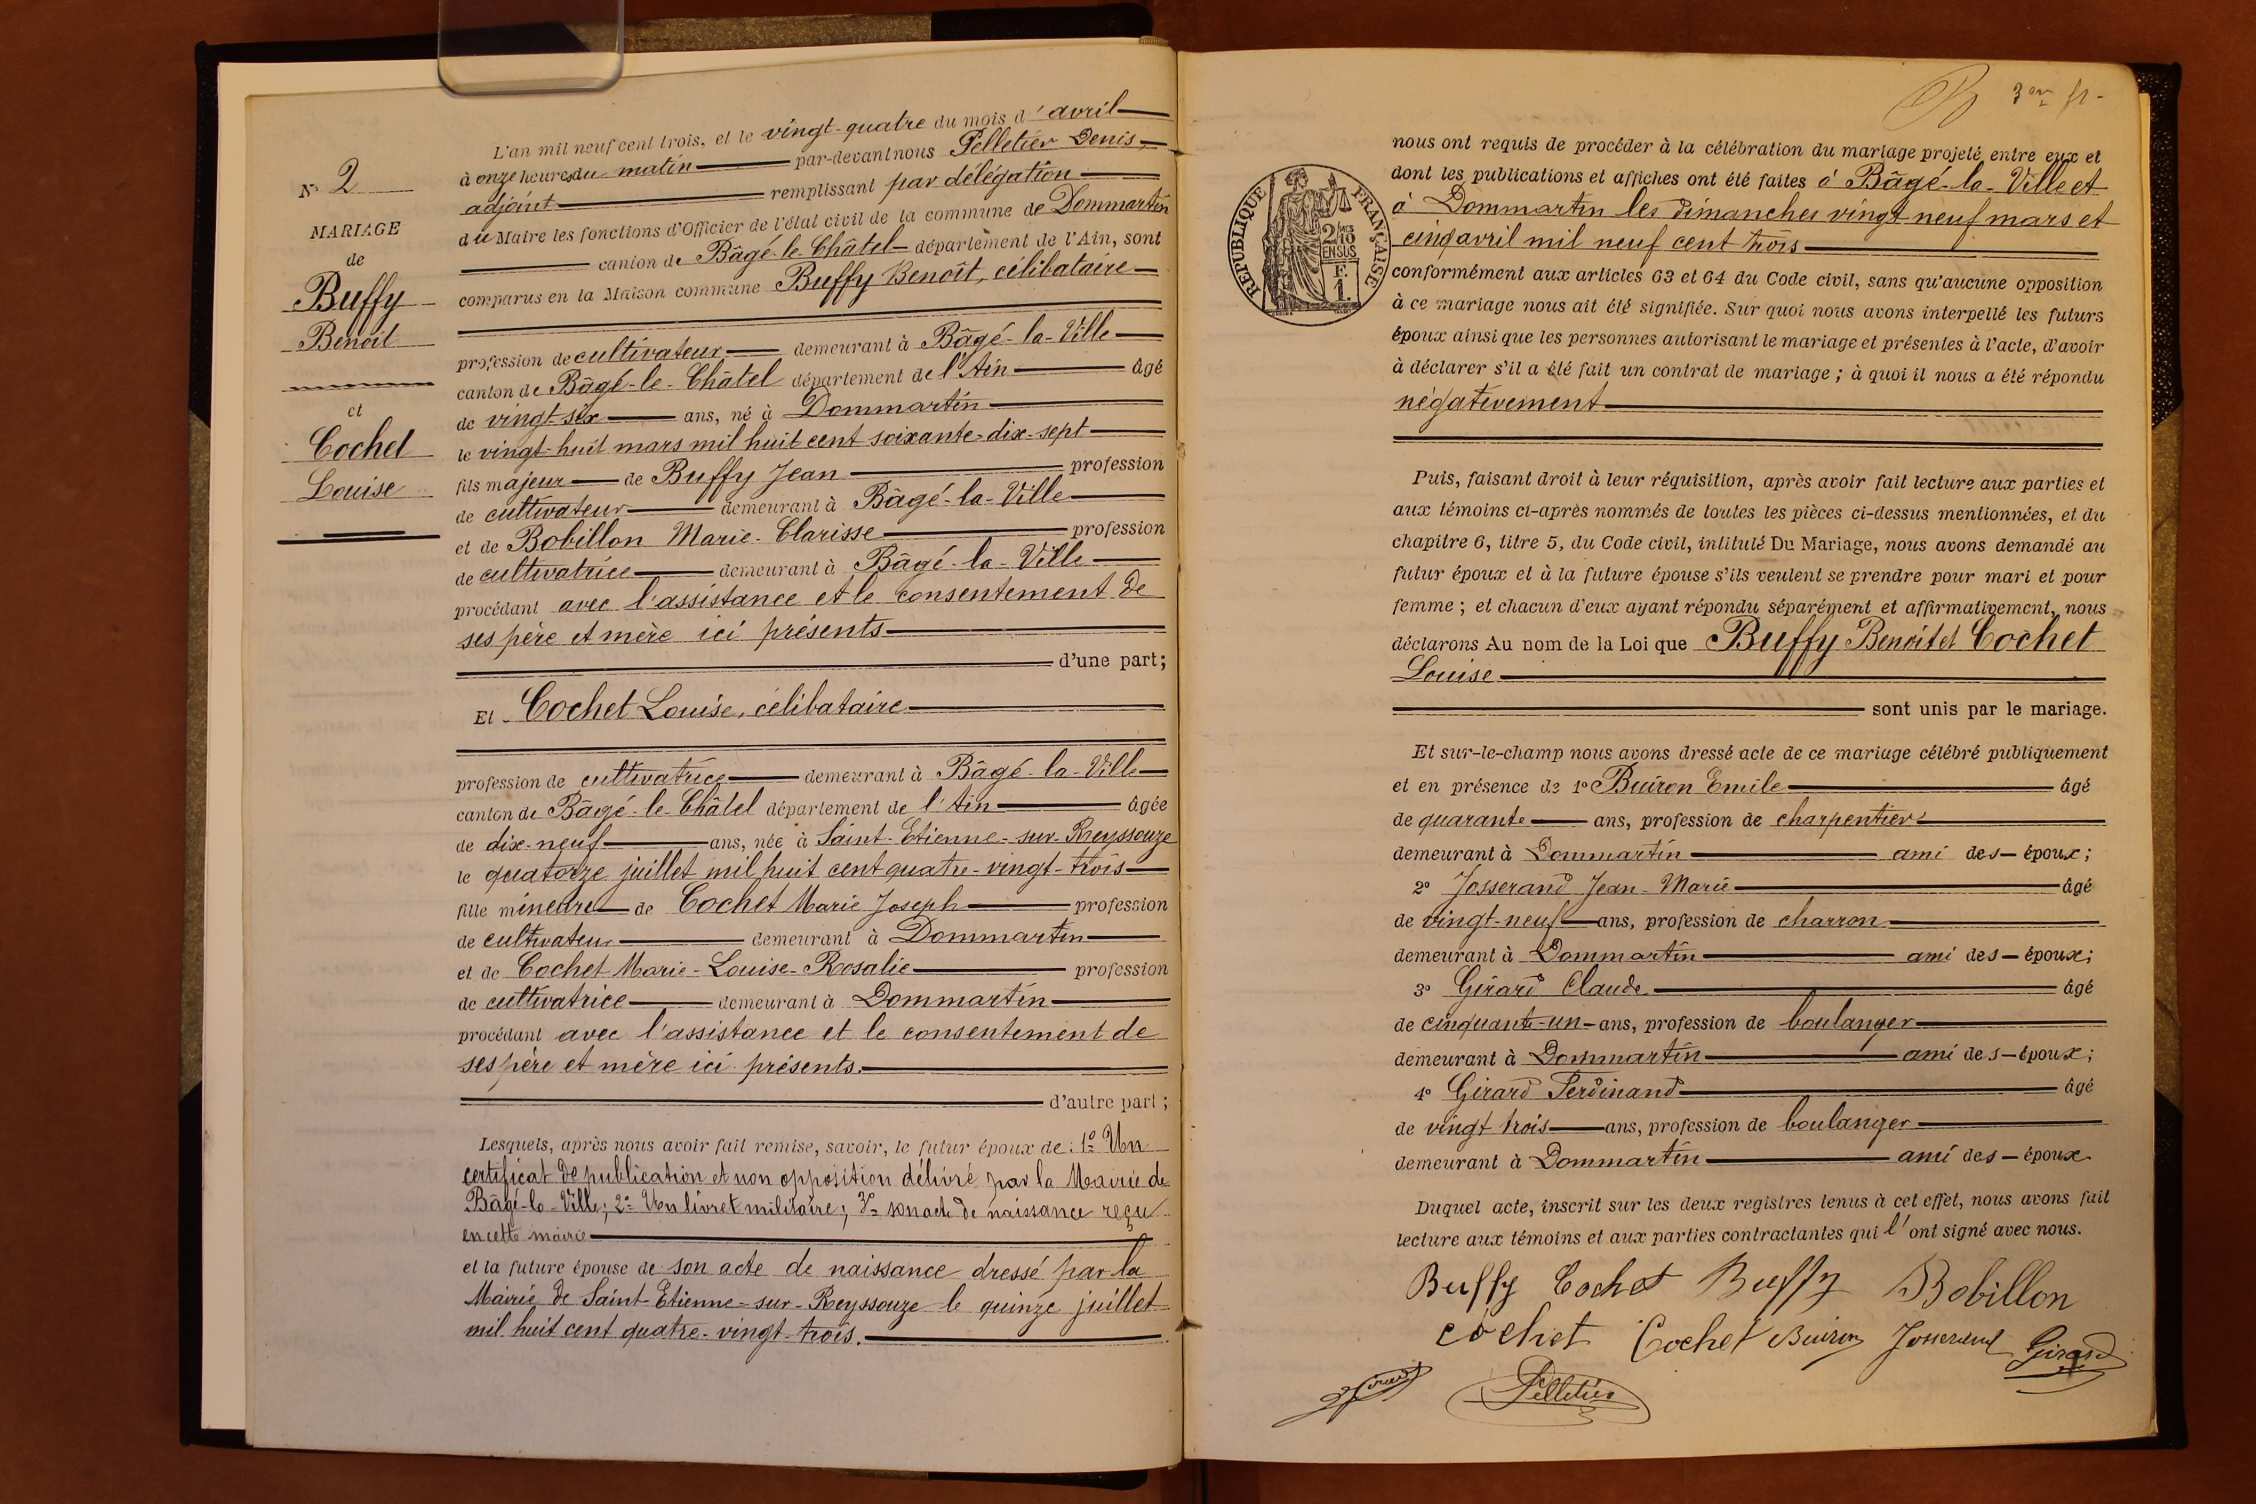 N° 2
MARIAGE
de
Buffy
Benoit
et
Cochet
Louise
L'an mil neuf cent trois, et le vingt-quatre du mois d'avril
à onze heures du matin par-devant nous Pelletier Denis,
adjoint remplissant par délégation
du Maire les fonctions d'Officier de l'état civil de la commune de Dommartin
canton de Bâgé-le-Châtel département de l'Ain, sont
comparus en la Maison commune Buffy Benoît, célibataire
profession de cultivateur demeurant à Bâgé-la-Ville
canton de Bâgé-le-Châtel département de l'Ain âgé
de vingt-six ans, né à Dommartin
le vingt-huit mars mil huit cent soixante-dix-sept
fils majeur de Buffy Jean profession
de cultivateur demeurant à Bâgé-la-Ville
et de Bobillon Marie-Clarisse profession
de cultivatrice demeurant à Bâgé-la-Ville
procédant avec l'assistance et le consentement de
ses père et mère ici présents
d'une part;
Et Cochet Louise, célibataire
profession de cultivatrice demeurant à Bâgé-la-Ville
canton de Bâgé-le-Châtel département de l'Ain âgée
de dix-neuf ans, née à Saint-Etienne-sur-Reyssouze
le quatorze juillet mil huit cent quatre-vingt-trois
fille mineure de Cochet Marie Joseph profession
de cultivateur demeurant à Dommartin
et de Cochet Marie-Louise-Rosalie profession
de cultivatrice demeurant à Dommartin
procédant avec l'assistance et le consentement de
ses père et mère ici présents.
d'autre part;
Lesquels, après nous avoir fait remise, savoir, le futur époux de: 1° Un
certificat de publication et non opposition délivré par la Mairie de
Bâgé-la-Ville; 2° Un livret militaire; 3° son acte de naissance reçu
en cette mairie
et la future épouse de son acte de naissance dressé par la
Mairie de Saint-Etienne-sur-Reyssouze le quinze juillet
mil huit cent quatre-vingt-trois.
nous ont requis de procéder à la célébration du mariage projeté entre eux et
dont les publications et affiches ont été faites à Bâgé-la-Ville et
à Dommartin les dimanches vingt neuf mars et
cinq avril mil neuf cent trois
RÉPUBLIQUE FRANÇAISE
2/10
EN SUS
F.
1.
conformément aux articles 63 et 64 du Code civil, sans qu'aucune opposition
à ce mariage nous ait été signifiée. Sur quoi nous avons interpellé les futurs
époux ainsi que les personnes autorisant le mariage et présentes à l'acte, d'avoir
à déclarer s'il a été fait un contrat de mariage; à quoi il nous a été répondu
négativement
Puis, faisant droit à leur réquisition, après avoir fait lecture aux parties et
aux témoins ci-après nommés de toutes les pièces ci-dessus mentionnées, et du
chapitre 6, titre 5, du Code civil, intitulé Du Mariage, nous avons demandé au
futur époux et à la future épouse s'ils veulent se prendre pour mari et pour
femme; et chacun d'eux ayant répondu séparément et affirmativement, nous
déclarons Au nom de la Loi que Buffy Benoit et Cochet
Louise
sont unis par le mariage.
Et sur-le-champ nous avons dressé acte de ce mariage célébré publiquement
et en présence de 1° Buiron Emile âgé
de quarante ans, profession de charpentier
demeurant à Dommartin ami des époux;
2° Josserand Jean-Marie âgé
de vingt-neuf ans, profession de charron
demeurant à Dommartin ami des époux;
3° Girard Claude âgé
de cinquante-un ans, profession de boulanger
demeurant à Dommartin ami des époux;
4° Girard Ferdinand âgé
de vingt trois ans, profession de boulanger
demeurant à Dommartin ami des époux
Duquel acte, inscrit sur les deux registres tenus à cet effet, nous avons fait
lecture aux témoins et aux parties contractantes qui l'ont signé avec nous.
Buffy Cochet Buffy Bobillon
Cochet Cochet Buiron Josserand Girard
Girard Pelletier